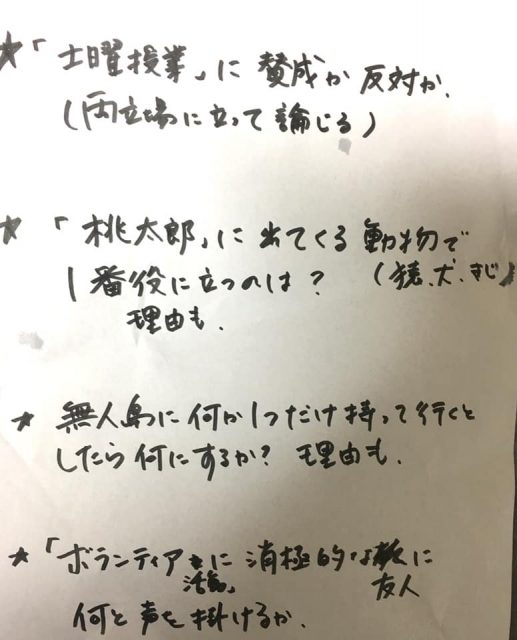 ★「土曜授業」に賛成か反対か.
(両立場に立って論じる)
★「桃太郎」に出てくる動物で
1番役に立つのは? (猿.犬.きじ)
理由も.
★ 無人島に何か1つだけ持って行くと
したら何にするか? 理由も.
★「ボランティア活動」に消極的な友人に
何と声を掛けるか.